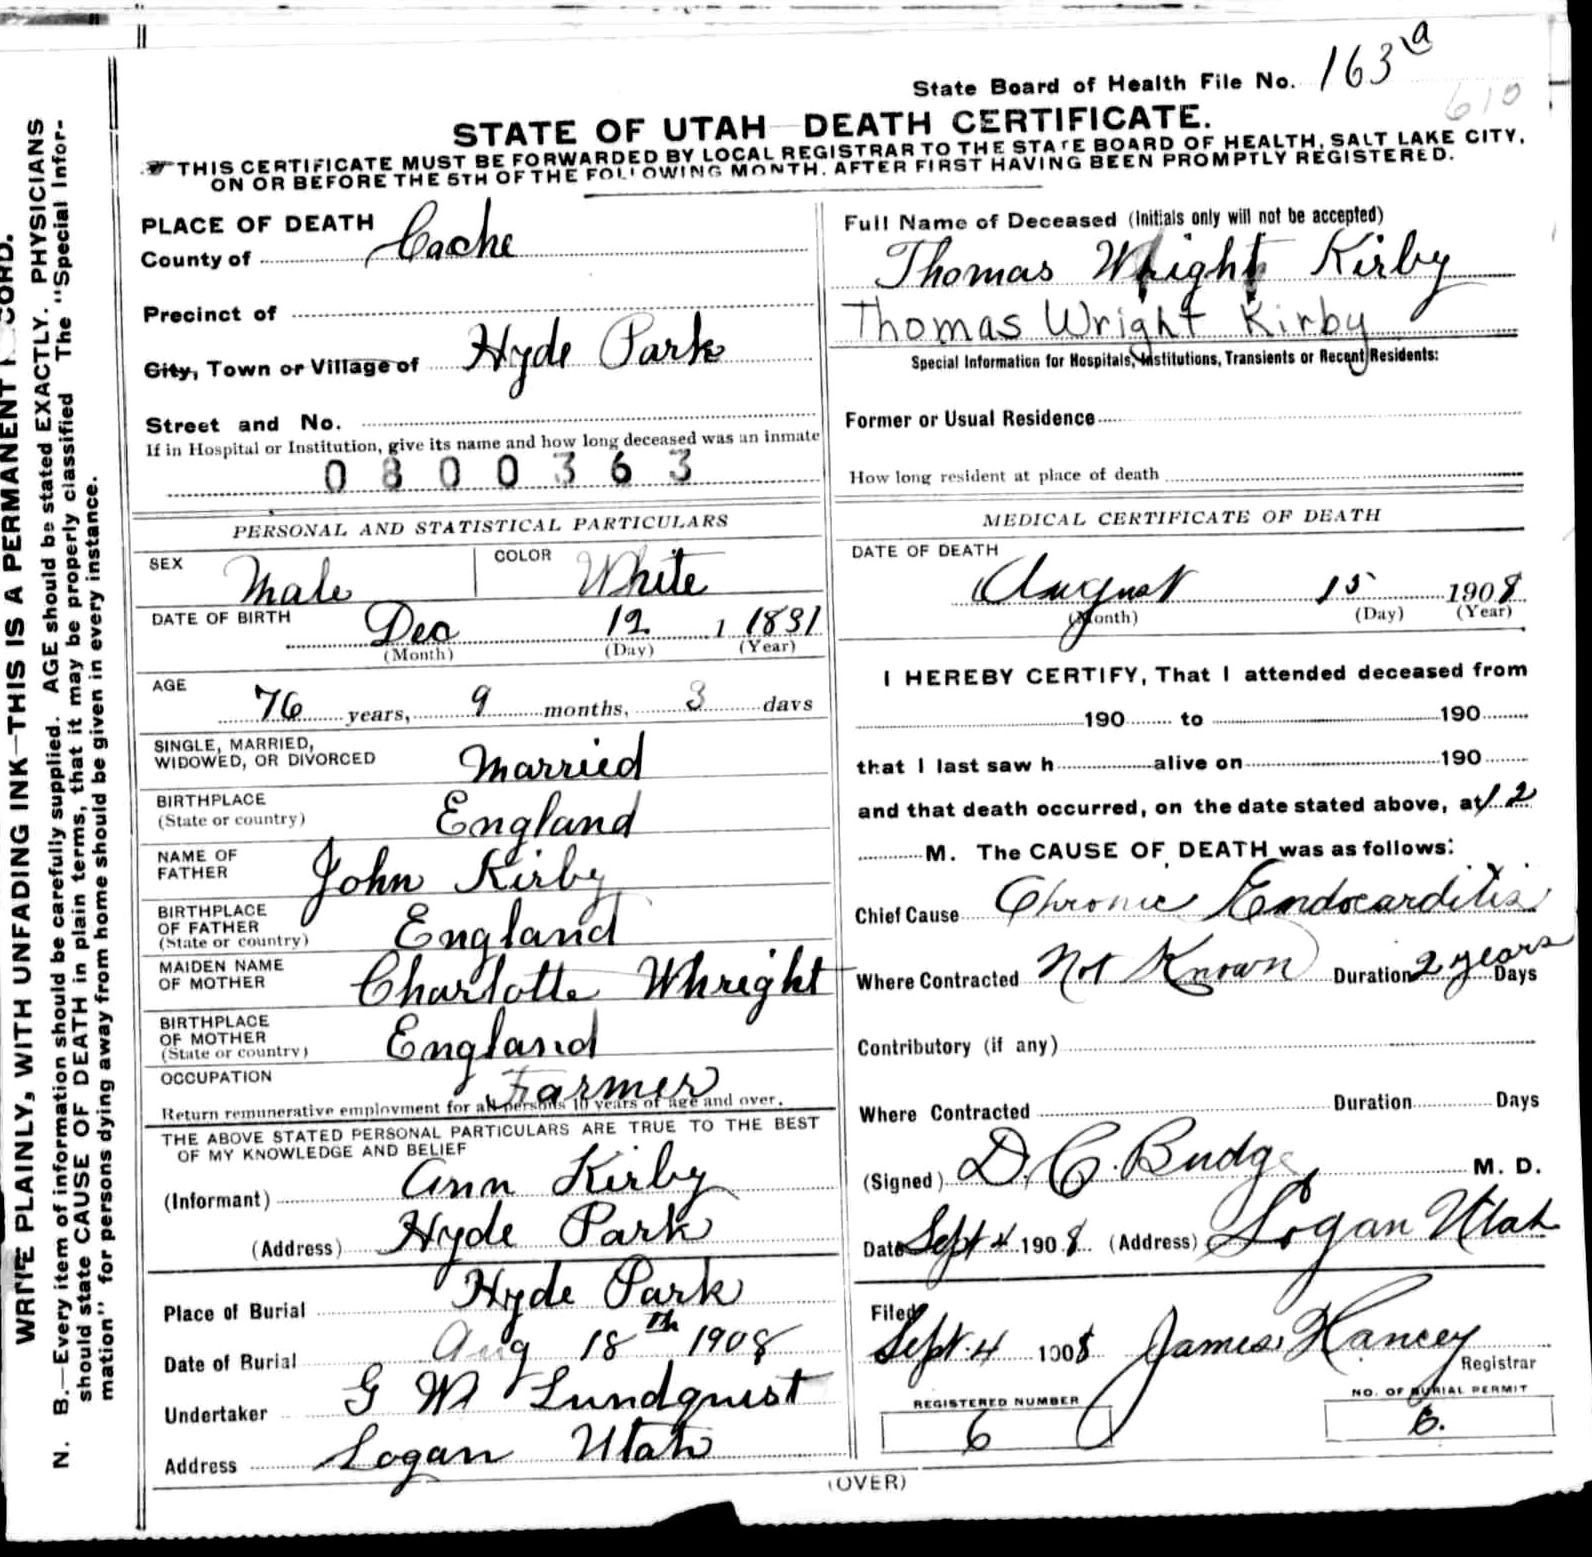 State Board of Health File No. 163 a
610
STATE OF UTAH—DEATH CERTIFICATE.
THIS CERTIFICATE MUST BE FORWARDED BY LOCAL REGISTRAR TO THE STATE BOARD OF HEALTH, SALT LAKE CITY,
ON OR BEFORE THE 5TH OF THE FOLLOWING MONTH, AFTER FIRST HAVING BEEN PROMPTLY REGISTERED.
WRITE PLAINLY, WITH UNFADING INK—THIS IS A PERMANENT CORD.
N. B.—Every item of information should be carefully supplied. AGE should be stated EXACTLY. PHYSICIANS
should state CAUSE OF DEATH in plain terms, that it may be properly classified The "Special Infor-
mation" for persons dying away from home should be given in every instance.
PLACE OF DEATH
County of Cache
Precinct of
City, Town or Village of Hyde Park
Street and No.
If in Hospital or Institution, give its name and how long deceased was an inmate
0800363
PERSONAL AND STATISTICAL PARTICULARS
SEX Male COLOR White
DATE OF BIRTH Dec 12, 1831
(Month) (Day) (Year)
AGE 76 years, 9 months, 3 days
SINGLE, MARRIED,
WIDOWED, OR DIVORCED Married
BIRTHPLACE
(State or country) England
NAME OF
FATHER John Kirby
BIRTHPLACE
OF FATHER
(State or country) England
MAIDEN NAME
OF MOTHER Charlotte Whright
BIRTHPLACE
OF MOTHER
(State or country) England
OCCUPATION Farmer
Return remunerative employment for all persons 10 years of age and over.
THE ABOVE STATED PERSONAL PARTICULARS ARE TRUE TO THE BEST
OF MY KNOWLEDGE AND BELIEF
(Informant) Ann Kirby
(Address) Hyde Park
Place of Burial Hyde Park
Date of Burial Aug 18th 1908
Undertaker G W Lundquist
Address Logan Utah
Full Name of Deceased (Initials only will not be accepted)
Thomas Wright Kirby
Thomas Wright Kirby
Special Information for Hospitals, Institutions, Transients or Recent Residents:
Former or Usual Residence
How long resident at place of death
MEDICAL CERTIFICATE OF DEATH
DATE OF DEATH
August 15 1908
(Month) (Day) (Year)
I HEREBY CERTIFY, That I attended deceased from
190 to 190
that I last saw h alive on 190
and that death occurred, on the date stated above, at 12
M. The CAUSE OF DEATH was as follows:
Chief Cause Chronic Endocarditis
Where Contracted Not Known Duration 2 years Days
Contributory (if any)
Where Contracted Duration Days
(Signed) D. C. Budge M. D.
Date Sept 4 1908 (Address) Logan Utah
Filed
Sept. 4 1908 James Hancey
Registrar
REGISTERED NUMBER
6
NO. OF BURIAL PERMIT
6.
(OVER)